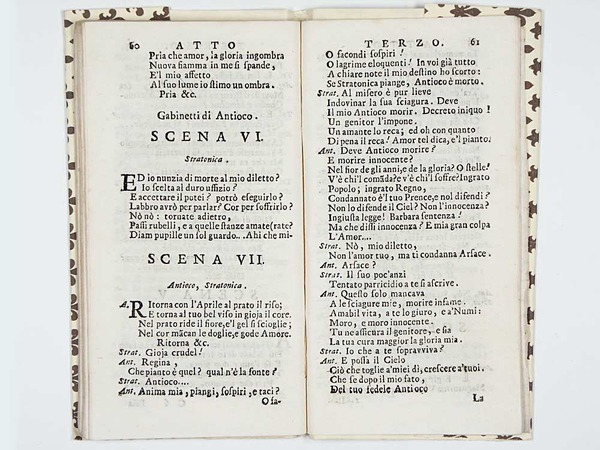 60 ATTO
Pria che amor, la gloria ingombra
Nuova fiamma in me si spande,
E'l mio affetto
Al suo lume io stimo un ombra.
Pria &c.
Gabinetti di Antioco.
SCENA VI.
Stratonica.
ED io nunzia di morte al mio diletto?
Io scelta al duro uffizio?
E accettare il potei? potrò eseguirlo?
Labbro avrò per parlar? Cor per soffrirlo?
Nò nò: tornate adietro,
Passi rubelli, e a quelle stanze amate(rate?
Diam pupille un sol guardo.. Ahi che mi-
SCENA VII.
Antioco, Stratonica.
A. Ritorna con l'Aprile al prato il riso;
E torna al tuo bel viso in gioja il core.
Nel prato ride il fiore, e'l gel si scioglie;
Nel cor mācan le doglie, e gode Amore.
Ritorna &c.
Strat. Gioja crudel!
Ant. Regina,
Che pianto è quel? qual n'è la fonte?
Strat. Antioco....
Ant. Anima mia, piangi, sospiri, e taci?
O fa-
TERZO. 61
O facondi sospiri!
O lagrime eloquenti! In voi già tutto
A chiare note il mio destino ho scorto:
Se Stratonica piange, Antioco è morto.
Strat. Al misero è pur lieve
Indovinar la sua sciagura. Deve
Il mio Antioco morir. Decreto iniquo!
Un genitor l'impone.
Un amante lo reca; ed oh con quanto
Di pena il reca! Amor tel dica, e'l pianto.
Ant. Deve Antioco morire?
E morire innocente?
Nel fior de gli anni, e de la gloria? O stelle!
V'è chi'l comāda? e v'è chi'l soffre? Ingrato
Popolo; ingrato Regno,
Condannato è'l tuo Prence, e nol difendi?
Non lo difende il Ciel? Non l'innocenza?
Ingiusta legge! Barbara sentenza!
Ma che dissi innocenza? E mia gran colpa
L'Amor....
Strat. Nò, mio diletto,
Non l'amor tuo, ma ti condanna Arsace.
Ant. Arsace?
Strat. Il suo poc'anzi
Tentato parricidio a te si ascrive.
Ant. Questo solo mancava
A le sciagure mie, morire infame.
Amabil vita, a te lo giuro, e a' Numi:
Moro, e moro innocente.
Tu ne assicura il genitore, e sia
La tua cura maggior la gloria mia.
Strat. Io che a te sopravviva?
Ant. E possa il Cielo
Ciò che toglie a' miei dì, crescere a' tuoi.
Che se dopo il mio fato,
Del tuo fedele Antioco
La